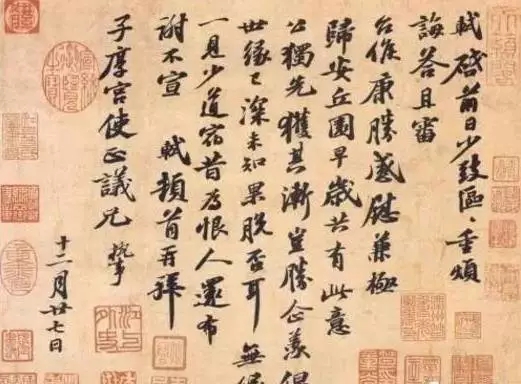 軾啓前日少致區〻重煩
誨答且審
台候康勝感慰兼極
歸安丘園早歲共有此意
公獨先獲其漸豈勝企羨但
世緣已深未知果脫否耳無緣
一見少道宿昔為恨人還布
謝不宣 軾頓首再拜
子厚宮使正議兄 執事
十二月廿七日